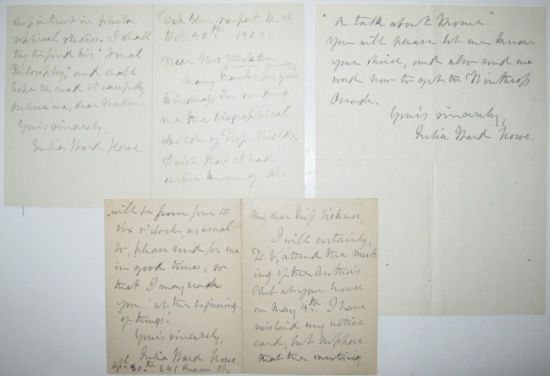 Oak Glen, Newport, R. I.
Oct. 20th 1905.
Dear Mrs
Many thanks for your
kindness in sending
me the biographical
sketch of Prof. Shields.
I wish that I had
earlier known of his
important in philo
sophical studies. I shall
try to find his "Final
Philosophy," and shall
hope to read it carefully.
Believe me, dear Madam,
Yours sincerely,
Julia Ward Howe.
"A talk about
You will please let me know
your choice, and also send me
word how to get to Winthrop
Yours sincerely,
Julia Ward Howe.
My dear Miss
I will certainly,
D. V., attend the meet
ing of the Authors
Club at your house
on May 4th. I have
mislaid my notice
card, but suppose
that the meeting
will be from four to
six o'clock, as usual
So, please send for me
in good time, so
that I may
you "at the beginning
of things."
Yours sincerely,
Julia Ward Howe
20th. 241 Beacon St.